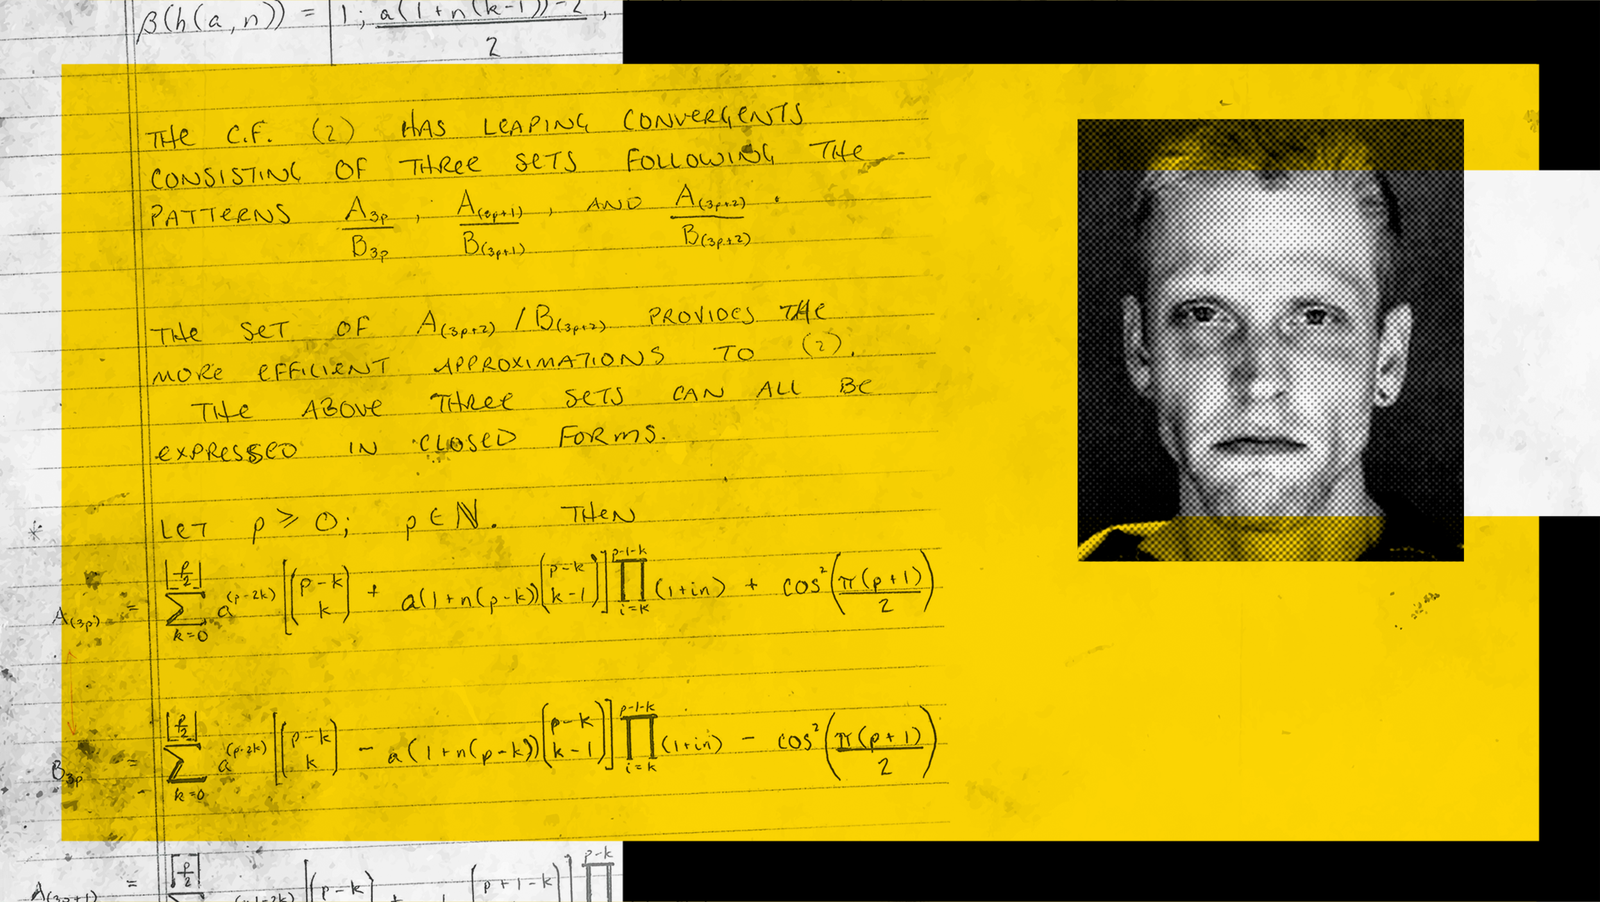 β(h(a,n)) = [1; a(1+n(k-1))-2 / 2,
THE C.F. (2) HAS LEAPING CONVERGENTS
CONSISTING OF THREE SETS FOLLOWING THE
PATTERNS A_{3p}/B_{3p}, A_{(3p+1)}/B_{(3p+1)}, AND A_{(3p+2)}/B_{(3p+2)}.
THE SET OF A_{(3p+2)}/B_{(3p+2)} PROVIDES THE
MORE EFFICIENT APPROXIMATIONS TO (2).
THE ABOVE THREE SETS CAN ALL BE
EXPRESSED IN CLOSED FORMS.
LET p ⩾ 0; p ∈ ℕ. THEN
A_{(3p)} = ∑_{k=0}^{⌊p/2⌋} a^{(p-2k)} [(p-k / k) + a(1+n(p-k))(p-k / k-1)] ∏_{i=k}^{p-1-k} (1+in) + cos²(π(p+1)/2)
B_{3p} = ∑_{k=0}^{⌊p/2⌋} a^{(p-2k)} [(p-k / k) - a(1+n(p-k))(p-k / k-1)] ∏_{i=k}^{p-1-k} (1+in) - cos²(π(p+1)/2)
A_{(3p+1)} =